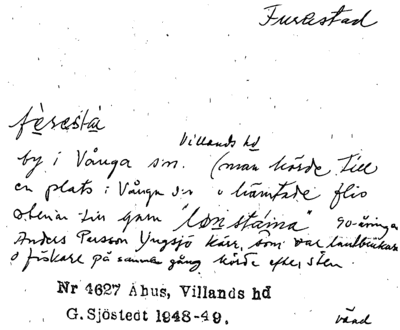 Furestad
fèrestá
Villands hd
by i Vånga sn. (man körde till
en plats i Vånga sn o hämtade
stenar
Anders Persson Yngsjö Kärr, som var lantbrukare
o fiskare på samma gång körde efter sten
Nr 4627 Åhus, Villands hd
G. Sjöstedt 1948-49.